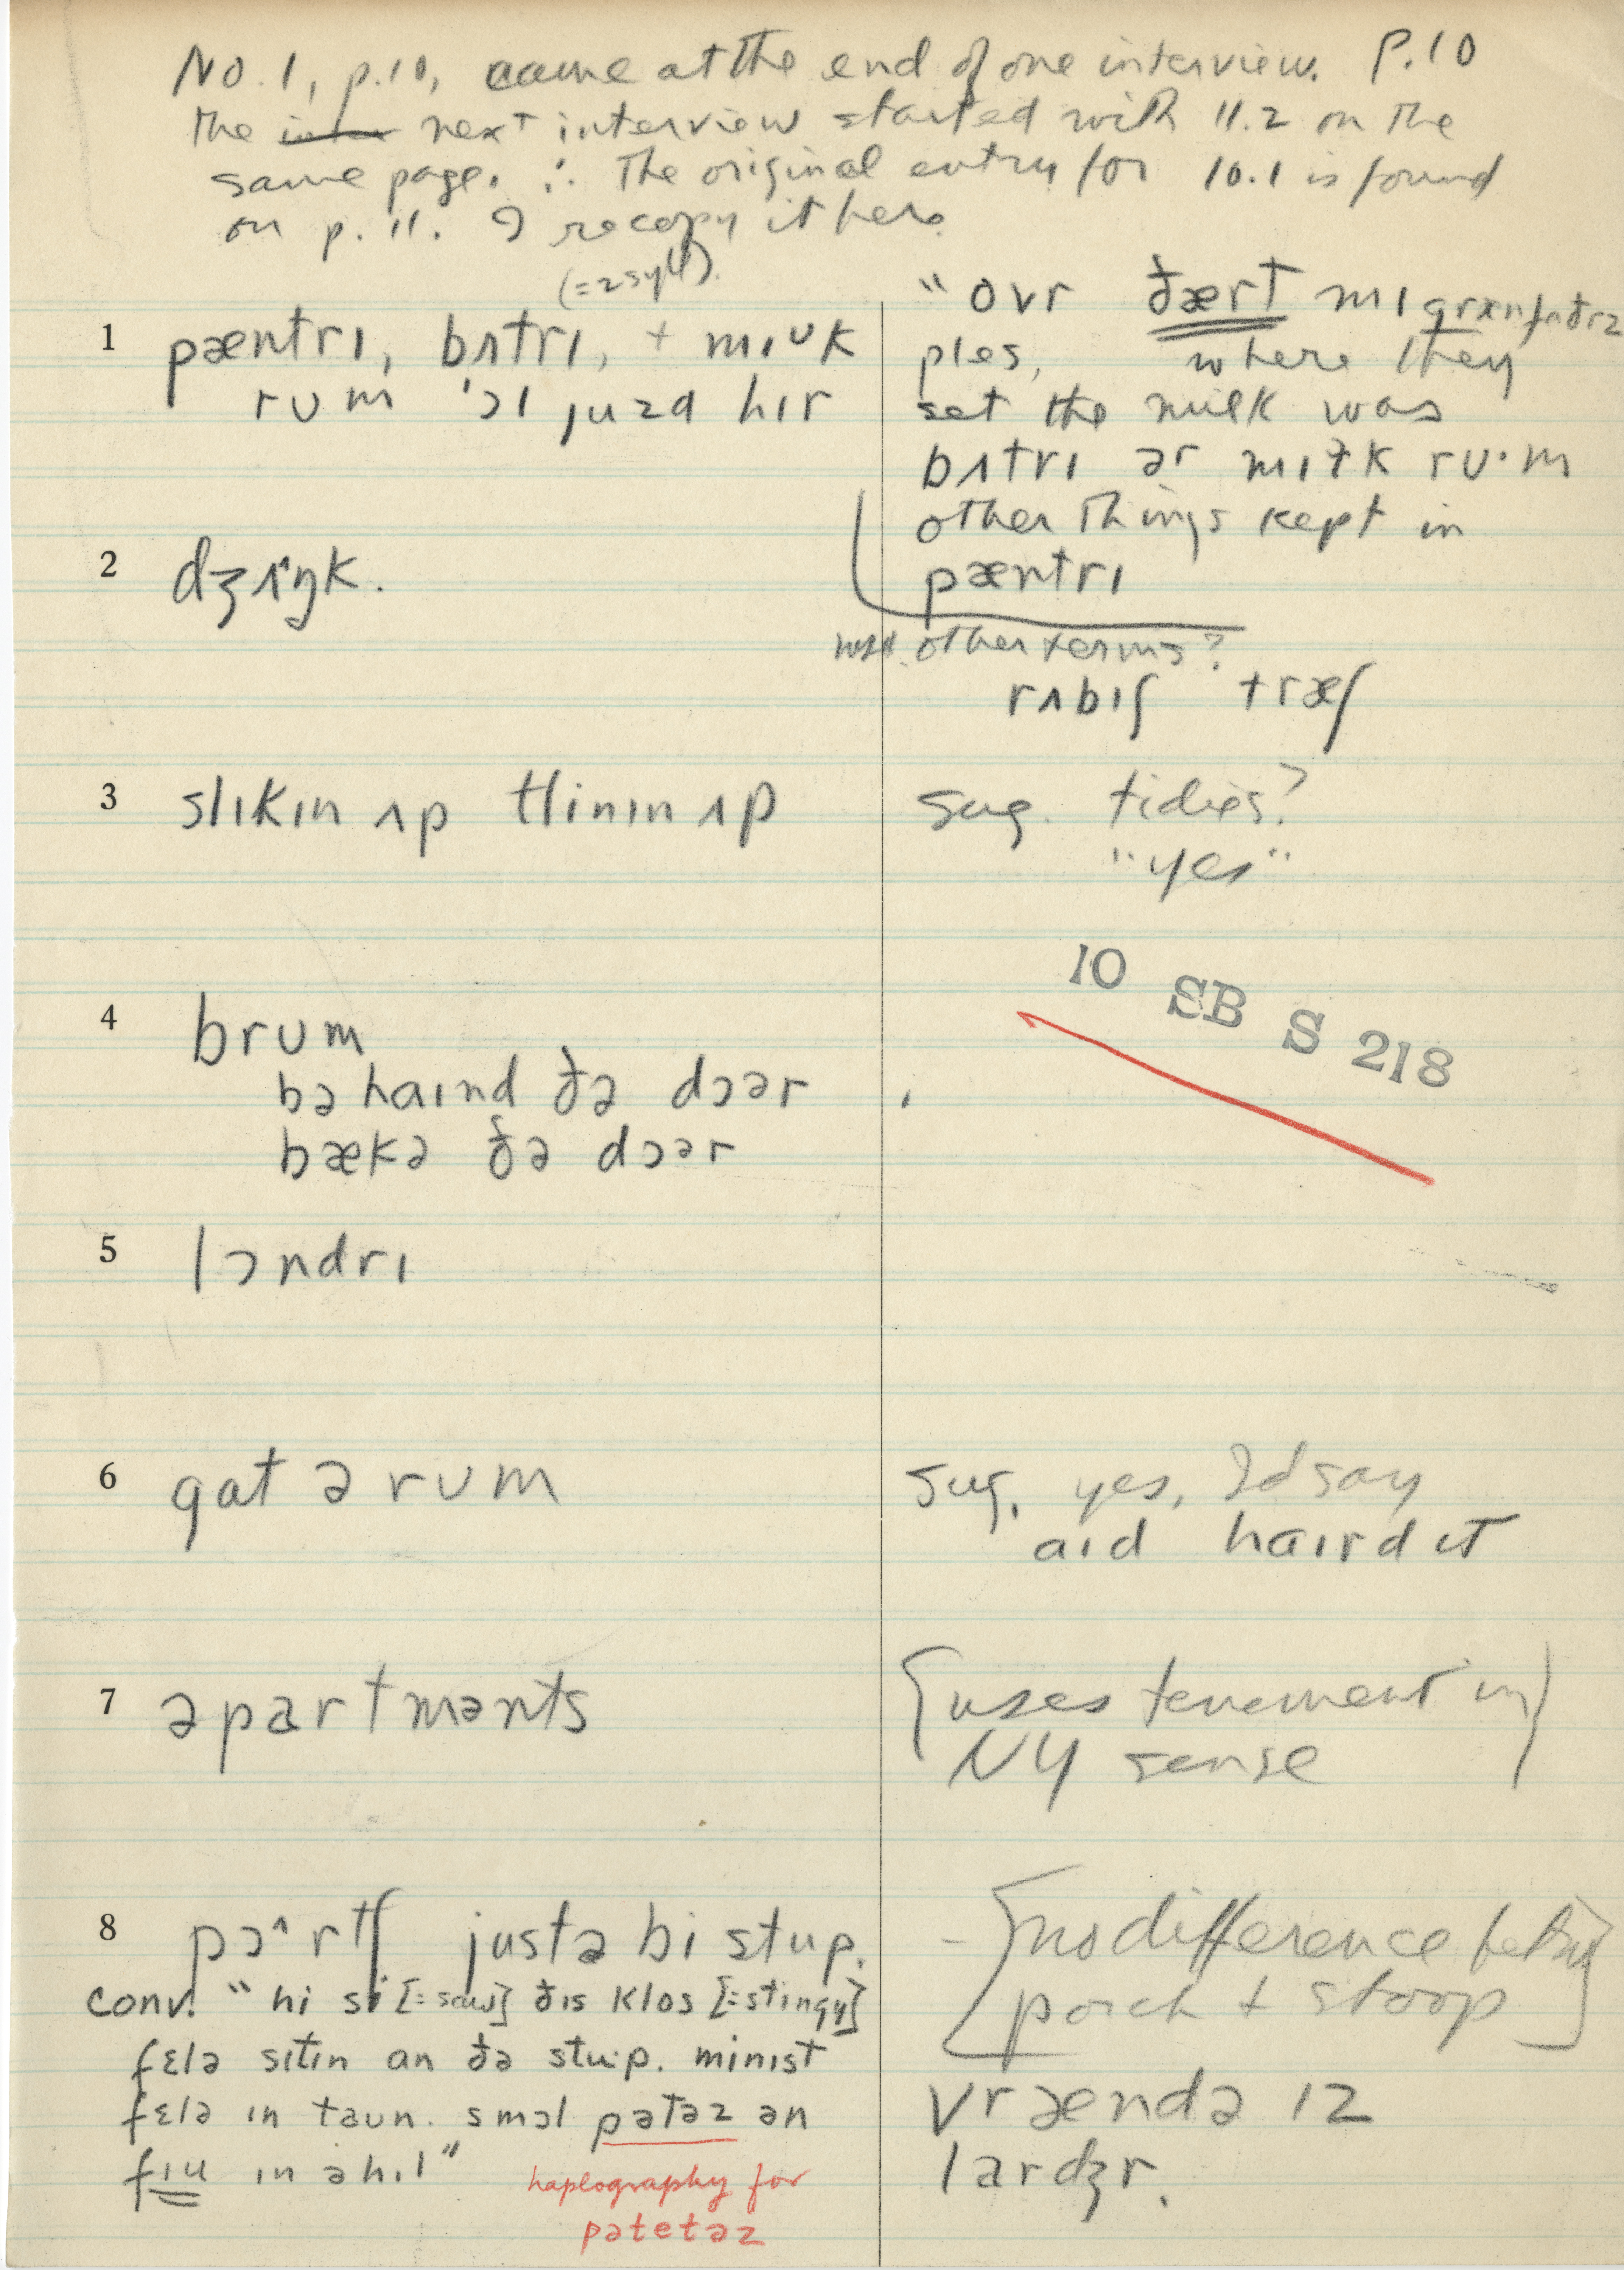 No. 1, p.10, came at the end of one interview. P.10
The next interview started with 11.2 on the
same page. ∴ The original entry for 10.1 is found
on p. 11. I recopy it here.
(= 2 syll).
1 pæntrɪ, bʌtrɪ, + mɪʊk
rʊm ɔl juzd hɪr
"ovr ðært mɪ grænfɑðrz
ples, where they
set the milk was
bʌtrɪ ər mɪɫk rʊ·m
other things kept in
pæntrɪ
2 dʒʌŋk.
other terms?
rʌbɪʃ træʃ
3 slɪkɪn ʌp tlinɪn ʌp
sug. tidies?
"yes"
10 SB S 218
4 brʊm
bəhaɪnd ðə dɔər
bækə ðə dɔər
5 lɔndrɪ
6 gɑt ə rʊm
sug. yes, I'd say
aɪd haɪrd ɪt
7 əpartmənts
[uses tenement in]
NY sense
8 pɔ^rtʃ justə bi stup.
[no difference betw
porch + stoop]
conv. "hi si [= saw] ðɪs klos [= stingy]
fɛlə sɪtɪn an ðə stu·p. minɪst
fɛlə ɪn taun. smɔl pətəz ən
fɪu ɪn ə hɪl"
vrændə ɪz
lardʒr.
haplography for
pətetəz